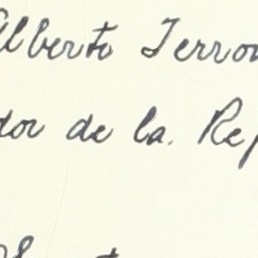 Alberto Terron
dor de la. Rep